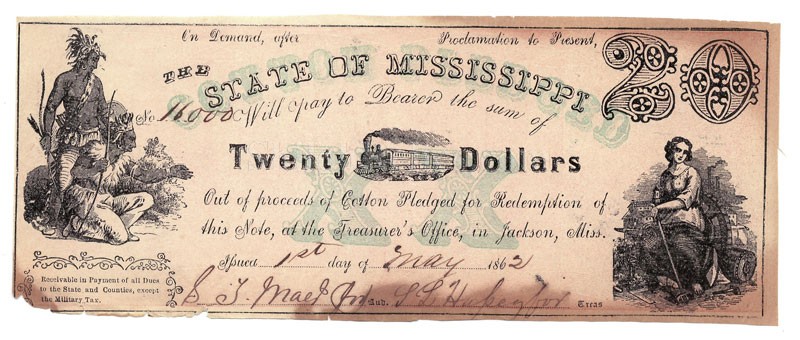 On Demand, after Proclamation to Present,
THE STATE OF MISSISSIPPI 20
COTTON PLEDGED
No 11000 Will pay to Bearer the sum of
Twenty Dollars
XX
Out of proceeds of Cotton Pledged for Redemption of
this Note, at the Treasurer's Office, in Jackson, Miss.
Issued 1st day of May 1862
Receivable in Payment of all Dues
to the State and Counties, except
the Military Tax.
Aud. Treas